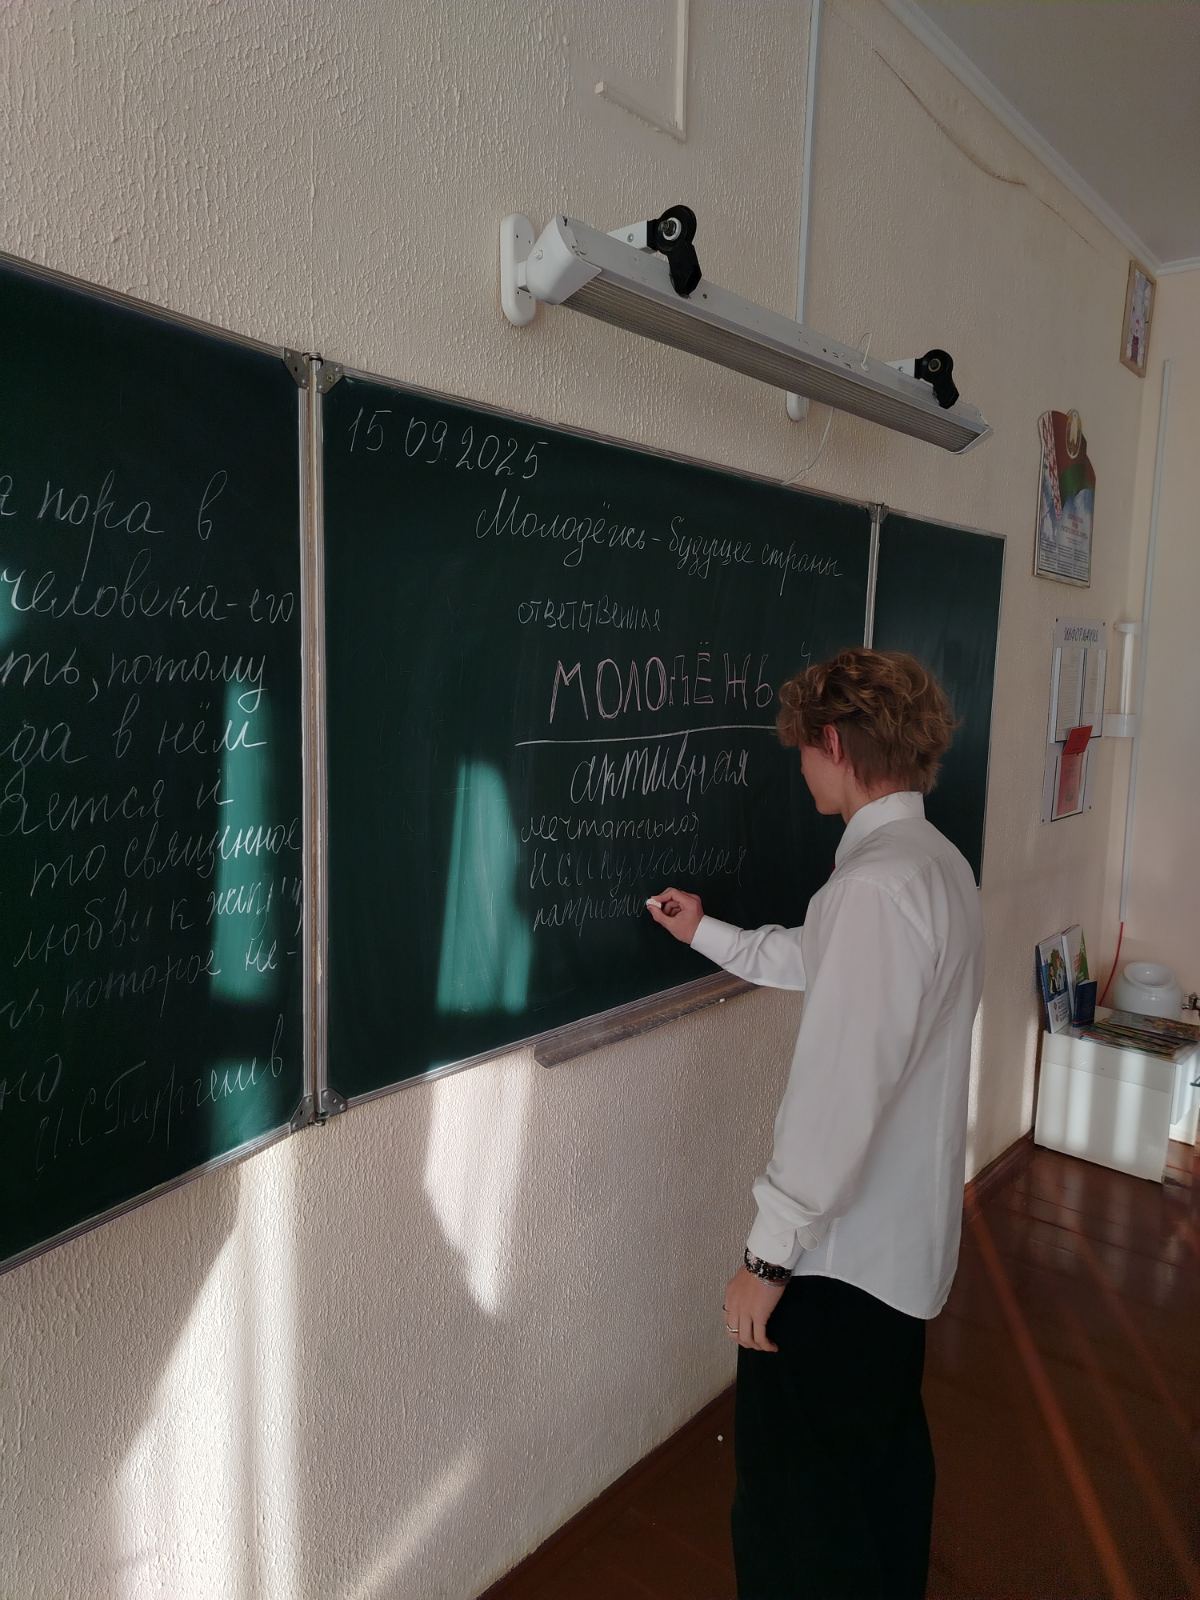 я пора в
человека - его
ть, потому
да в нём
ается и
то священное
любви к
ь которое не-
но
И.С.Тургенев
15.09.2025
Молодёжь - будущее страны
ответственная
МОЛОДЁЖЬ
активная
мечтательная
ИНФОРМАЦИЯ